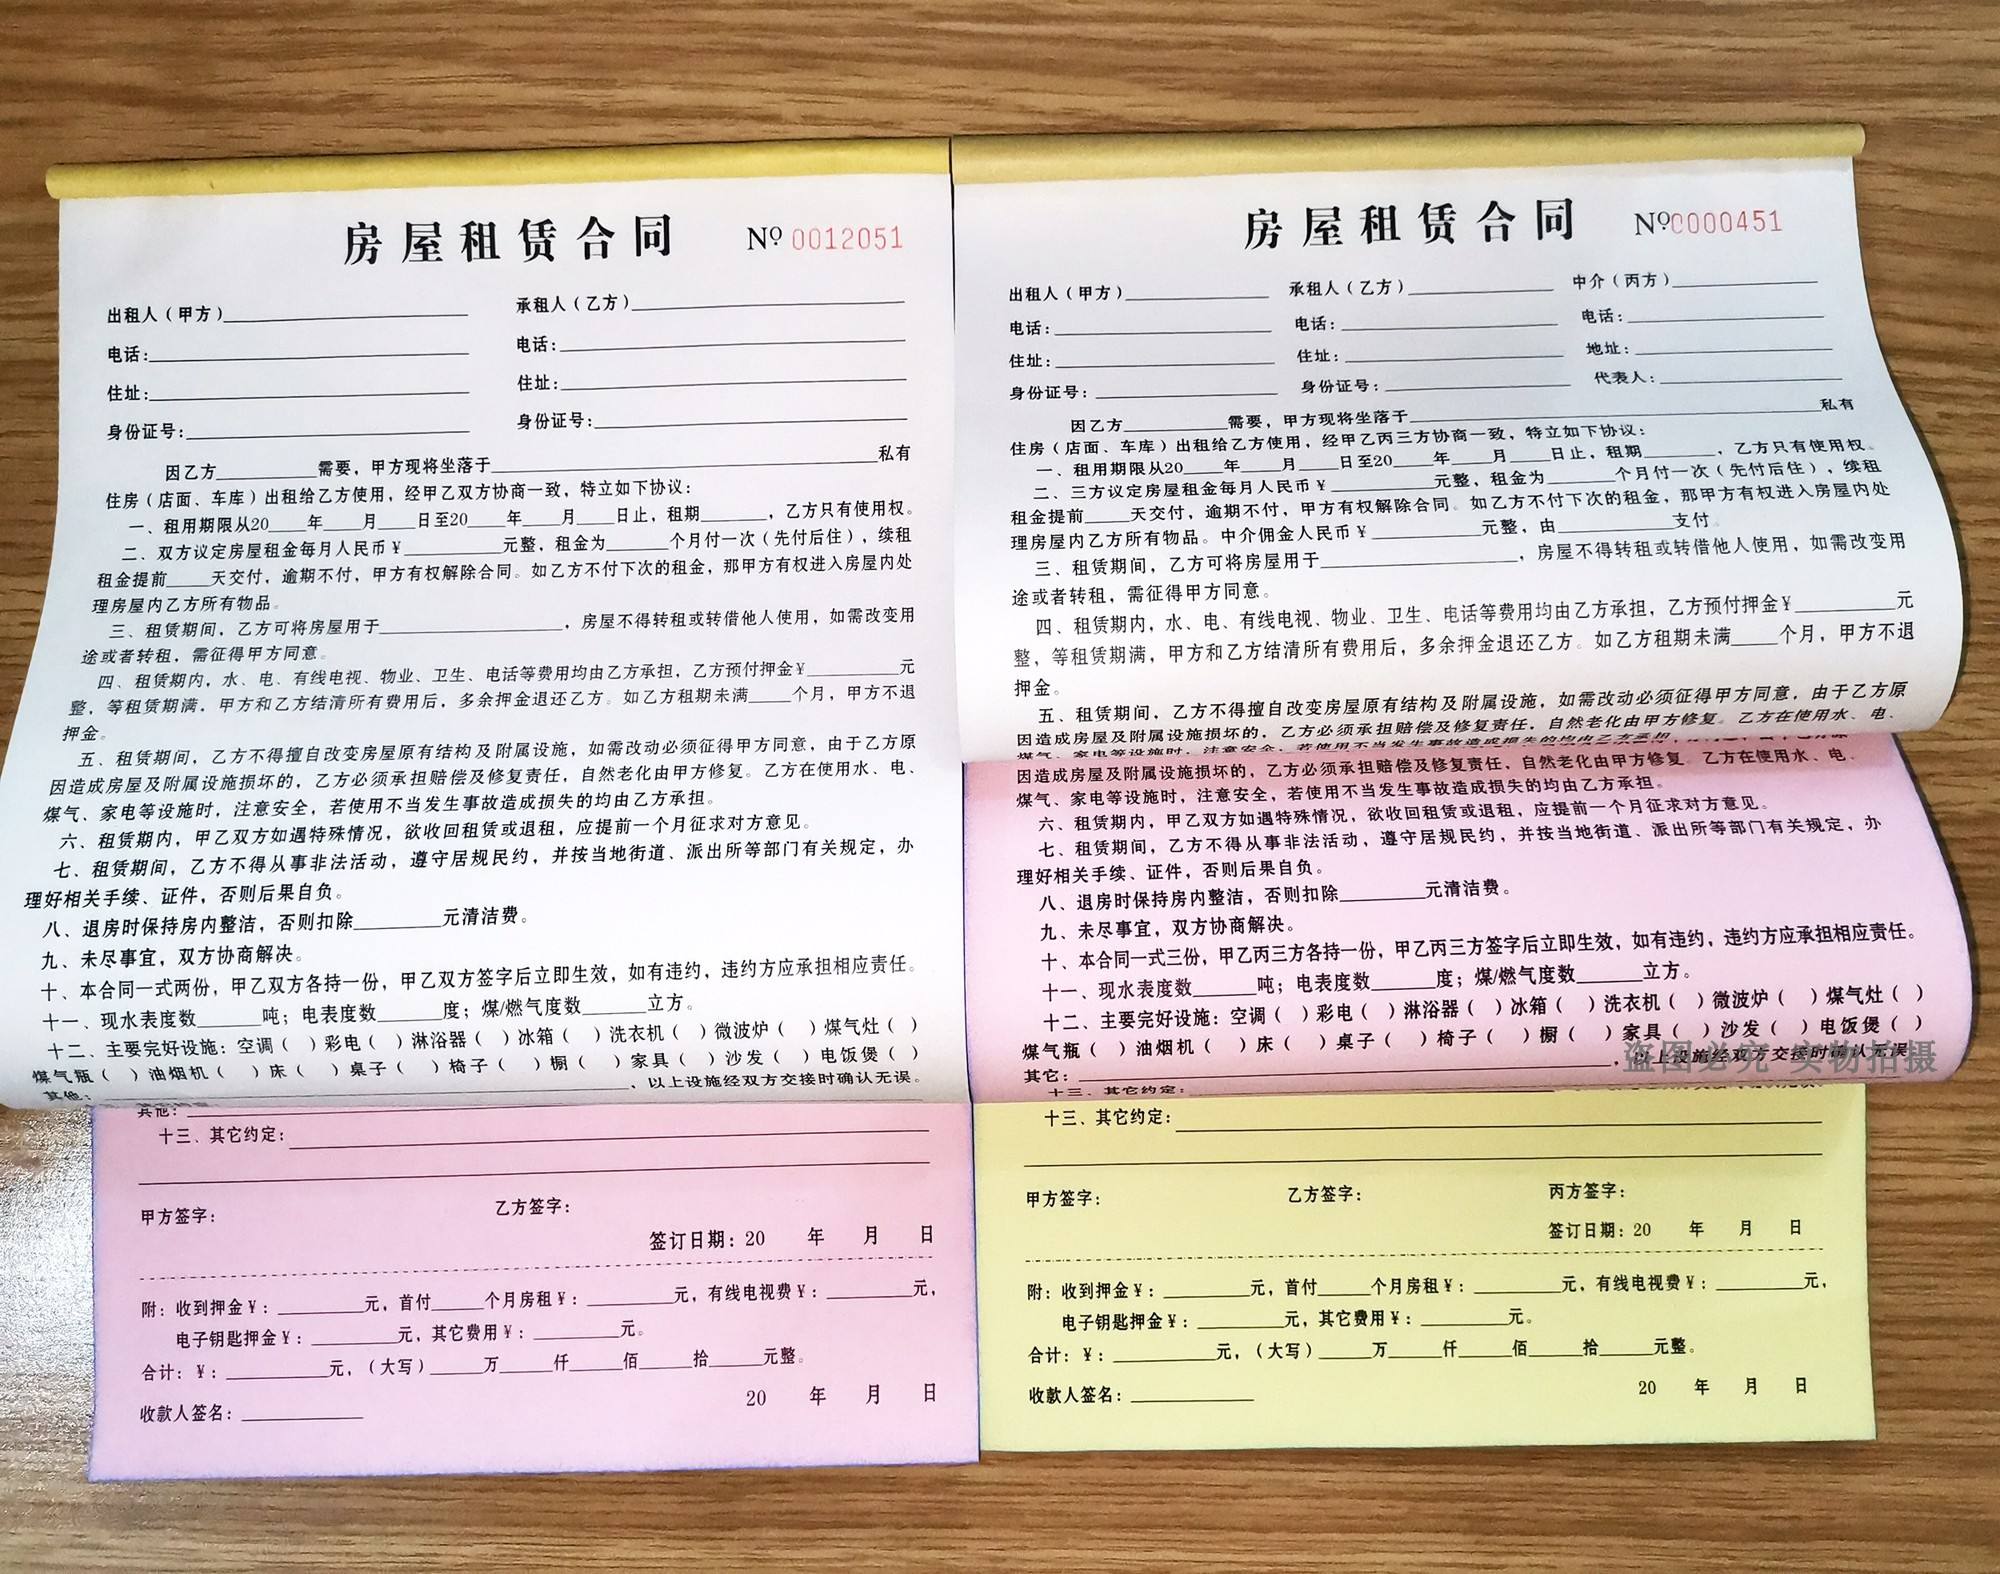 房屋租赁合同 Nº 0012051
出租人(甲方)____ 承租人(乙方)____
电话:____ 电话:____
住址:____ 住址:____
身份证号:____ 身份证号:____
因乙方____需要，甲方现将坐落于____私有
住房(店面、车库)出租给乙方使用，经甲乙双方协商一致，特立如下协议:
一、租用期限从20____年____月____日至20____年____月____日止，租期____，乙方只有使用权。
二、双方议定房屋租金每月人民币¥____元整，租金为____个月付一次(先付后住)，续租
租金提前____天交付，逾期不付，甲方有权解除合同。如乙方不付下次的租金，那甲方有权进入房屋内处
理房屋内乙方所有物品。
三、租赁期间，乙方可将房屋用于____，房屋不得转租或转借他人使用，如需改变用
途或者转租，需征得甲方同意。
四、租赁期内，水、电、有线电视、物业、卫生、电话等费用均由乙方承担，乙方预付押金¥____元
整，等租赁期满，甲方和乙方结清所有费用后，多余押金退还乙方。如乙方租期未满____个月，甲方不退
押金。
五、租赁期间，乙方不得擅自改变房屋原有结构及附属设施，如需改动必须征得甲方同意，由于乙方原
因造成房屋及附属设施损坏的，乙方必须承担赔偿及修复责任，自然老化由甲方修复。乙方在使用水、电、
煤气、家电等设施时，注意安全，若使用不当发生事故造成损失的均由乙方承担。
六、租赁期内，甲乙双方如遇特殊情况，欲收回租赁或退租，应提前一个月征求对方意见。
七、租赁期间，乙方不得从事非法活动，遵守居规民约，并按当地街道、派出所等部门有关规定，办
理好相关手续、证件，否则后果自负。
八、退房时保持房内整洁，否则扣除____元清洁费。
九、未尽事宜，双方协商解决。
十、本合同一式两份，甲乙双方各持一份，甲乙双方签字后立即生效，如有违约，违约方应承担相应责任。
十一、现水表度数____吨；电表度数____度；煤/燃气度数____立方。
十二、主要完好设施：空调( )彩电( )淋浴器( )冰箱( )洗衣机( )微波炉( )煤气灶( )
煤气瓶( )油烟机( )床( )桌子( )椅子( )橱( )家具( )沙发( )电饭煲( )
其他:____、以上设施经双方交接时确认无误。
其他:____
十三、其它约定:____
甲方签字: 乙方签字:
签订日期: 20 年 月 日
附: 收到押金¥: ____元，首付____个月房租¥: ____元，有线电视费¥: ____元，
电子钥匙押金¥: ____元，其它费用¥: ____元。
合计: ¥: ____元，(大写)____万____仟____佰____拾____元整。
20 年 月 日
收款人签名:____
房屋租赁合同 Nº 0000451
出租人(甲方)____ 承租人(乙方)____ 中介(丙方)____
电话:____ 电话:____ 电话:____
住址:____ 住址:____ 地址:____
身份证号:____ 身份证号:____ 代表人:____
因乙方____需要，甲方现将坐落于____私有
住房(店面、车库)出租给乙方使用，经甲乙丙三方协商一致，特立如下协议:
一、租用期限从20____年____月____日至20____年____月____日止，租期____，乙方只有使用权。
二、三方议定房屋租金每月人民币¥____元整，租金为____个月付一次(先付后住)，续租
租金提前____天交付，逾期不付，甲方有权解除合同。如乙方不付下次的租金，那甲方有权进入房屋内处
理房屋内乙方所有物品。中介佣金人民币¥____元整，由____支付。
三、租赁期间，乙方可将房屋用于____，房屋不得转租或转借他人使用，如需改变用
途或者转租，需征得甲方同意。
四、租赁期内，水、电、有线电视、物业、卫生、电话等费用均由乙方承担，乙方预付押金¥____元
整，等租赁期满，甲方和乙方结清所有费用后，多余押金退还乙方。如乙方租期未满____个月，甲方不退
押金。
五、租赁期间，乙方不得擅自改变房屋原有结构及附属设施，如需改动必须征得甲方同意，由于乙方原
因造成房屋及附属设施损坏的，乙方必须承担赔偿及修复责任，自然老化由甲方修复。乙方在使用水、电、
煤气、家电等设施时，注意安全，若使用不当发生事故造成损失的均由乙方承担
因造成房屋及附属设施损坏的，乙方必须承担赔偿及修复责任，自然老化由甲方修复。乙方在使用水、电、
煤气、家电等设施时，注意安全，若使用不当发生事故造成损失的均由乙方承担。
六、租赁期内，甲乙双方如遇特殊情况，欲收回租赁或退租，应提前一个月征求对方意见。
七、租赁期间，乙方不得从事非法活动，遵守居规民约，并按当地街道、派出所等部门有关规定，办
理好相关手续、证件，否则后果自负。
八、退房时保持房内整洁，否则扣除____元清洁费。
九、未尽事宜，双方协商解决。
十、本合同一式三份，甲乙丙三方各持一份，甲乙丙三方签字后立即生效，如有违约，违约方应承担相应责任。
十一、现水表度数____吨；电表度数____度；煤/燃气度数____立方。
十二、主要完好设施：空调( )彩电( )淋浴器( )冰箱( )洗衣机( )微波炉( )煤气灶( )
煤气瓶( )油烟机( )床( )桌子( )椅子( )橱( )家具( )沙发( )电饭煲( )
其它:____，以上设施经双方交接时确认无误
盗图必究 实物拍摄
十三、其它约定:
十三、其它约定:____
甲方签字: 乙方签字: 丙方签字:
签订日期: 20 年 月 日
附: 收到押金¥: ____元，首付____个月房租¥: ____元，有线电视费¥: ____元，
电子钥匙押金¥: ____元，其它费用¥: ____元。
合计: ¥: ____元，(大写)____万____仟____佰____拾____元整。
20 年 月 日
收款人签名:____